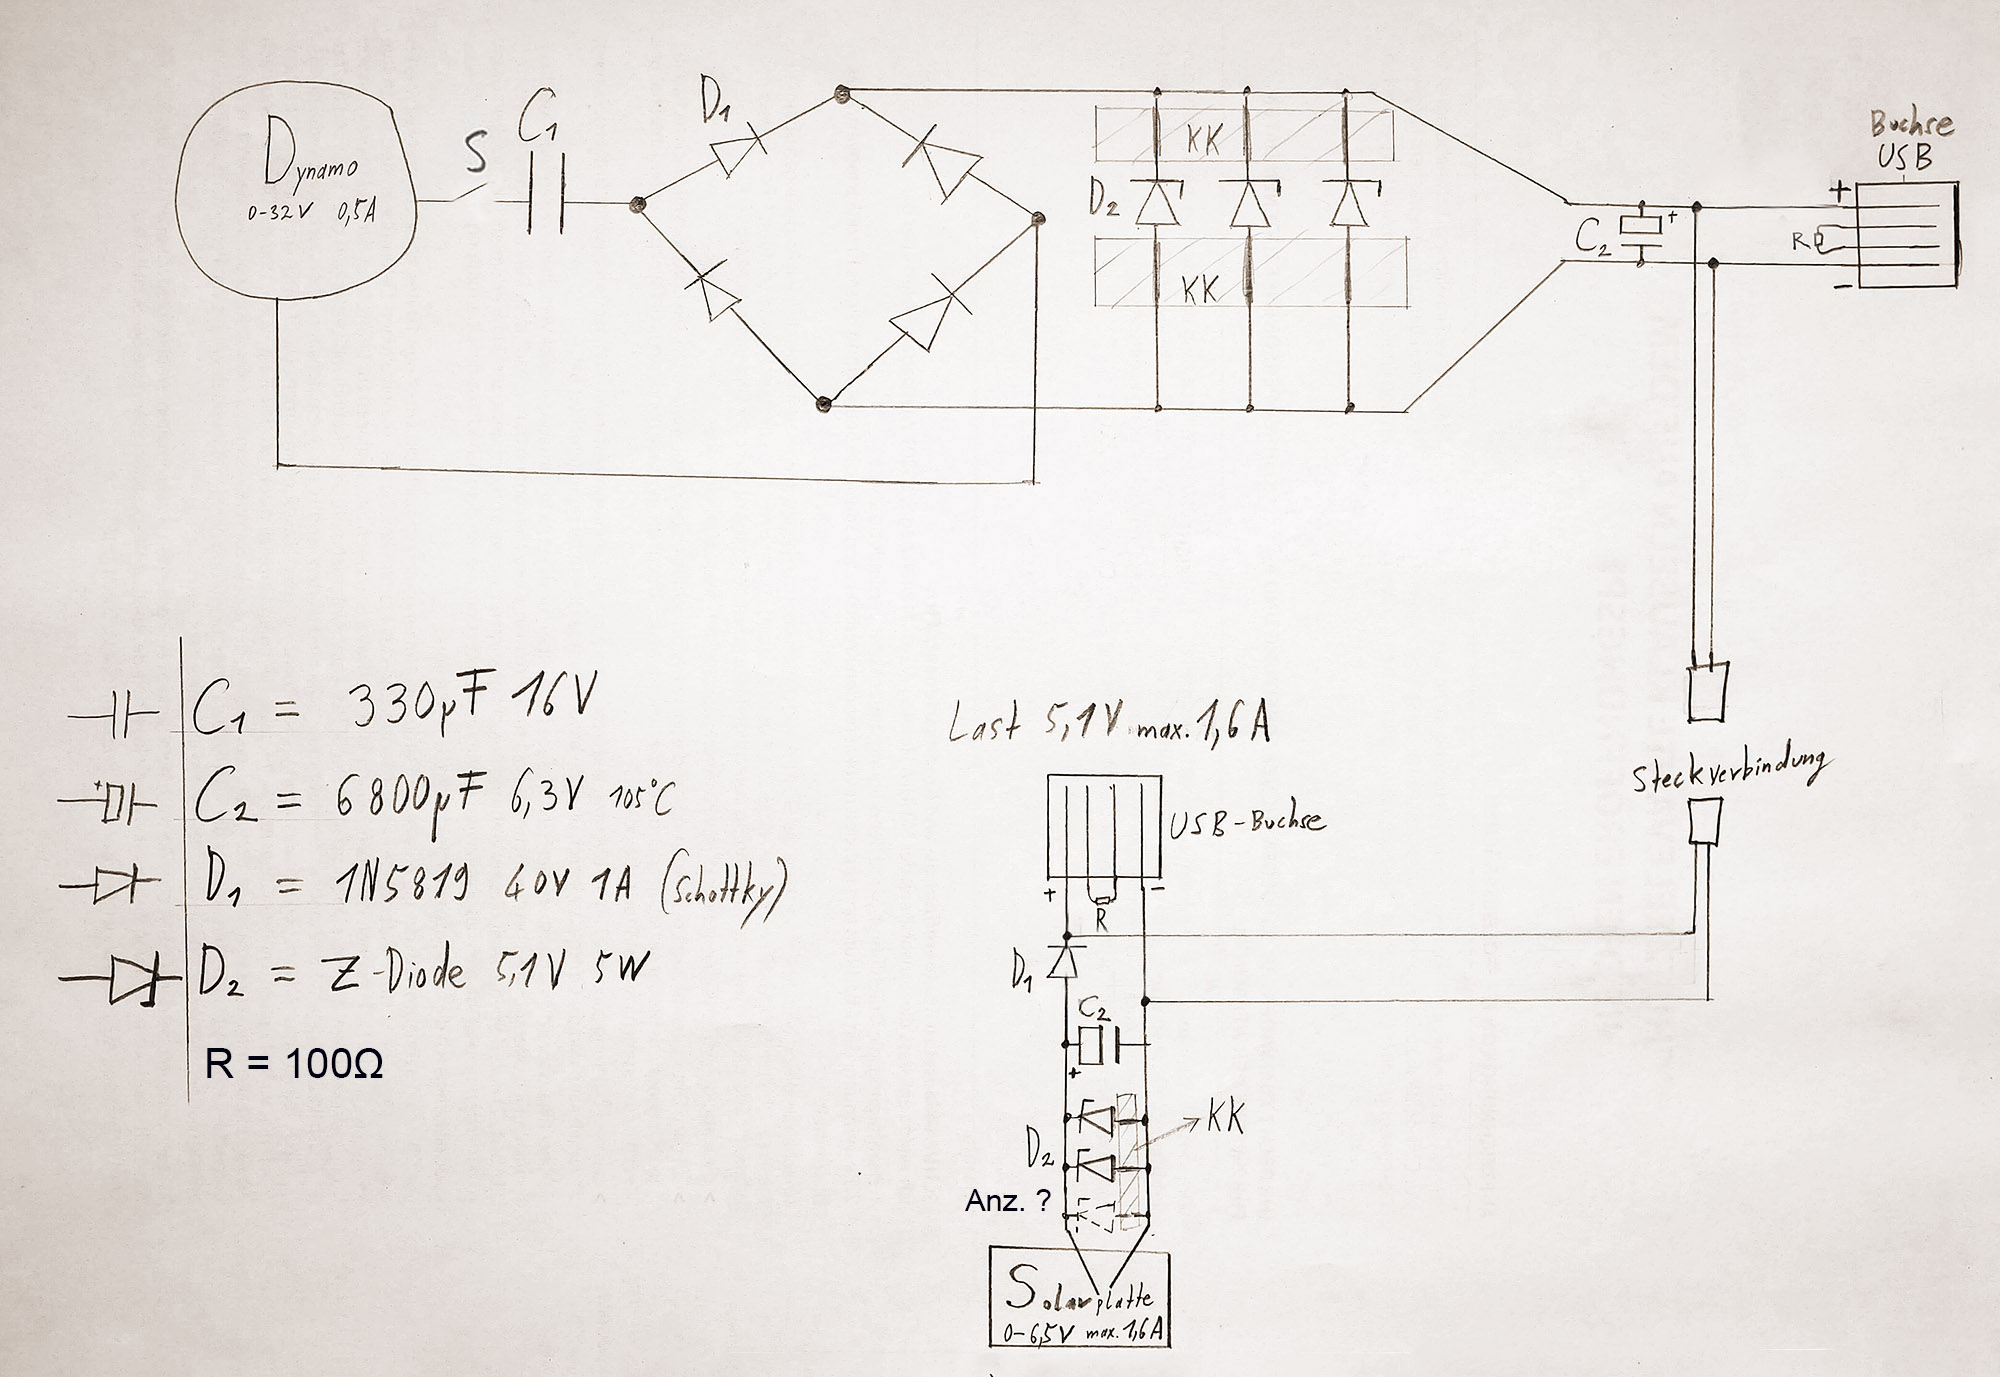 Dynamo
0-32V 0,5A
S
C1
D1
KK
D2
KK
Buchse
USB
+
C2
+
R
-
C1 = 330µF 16V
+
C2 = 6800µF 6,3V 105°C
D1 = 1N5819 40V 1A (Schottky)
D2 = Z-Diode 5,1V 5W
R = 100Ω
Last 5,1V max. 1,6A
USB-Buchse
+
-
R
D1
C2
+
KK
D2
Anz. ?
Solarplatte
0-6,5V max. 1,6A
Steckverbindung